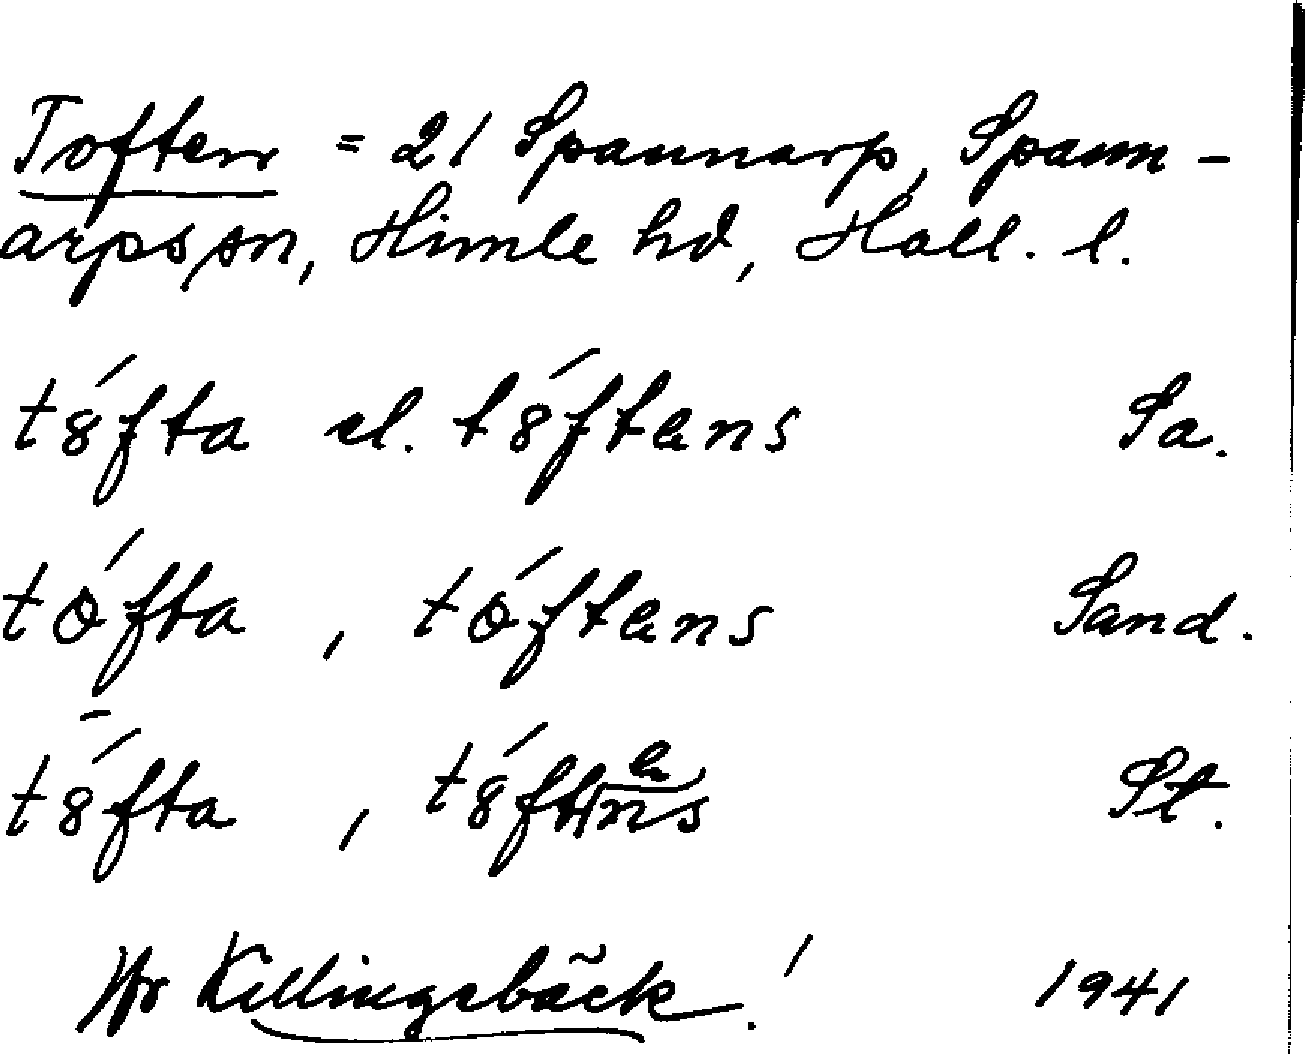 Toften = 21 Spannarp, Spann-
arps sn, Himle hd, Hall. l.
tȣ́fta el. tȣ́ftens Sa.
tó̀fta, tóftens Sand.
tȣ́fta, tȣ́ftens St.
Hr Killingsbäck! 1941